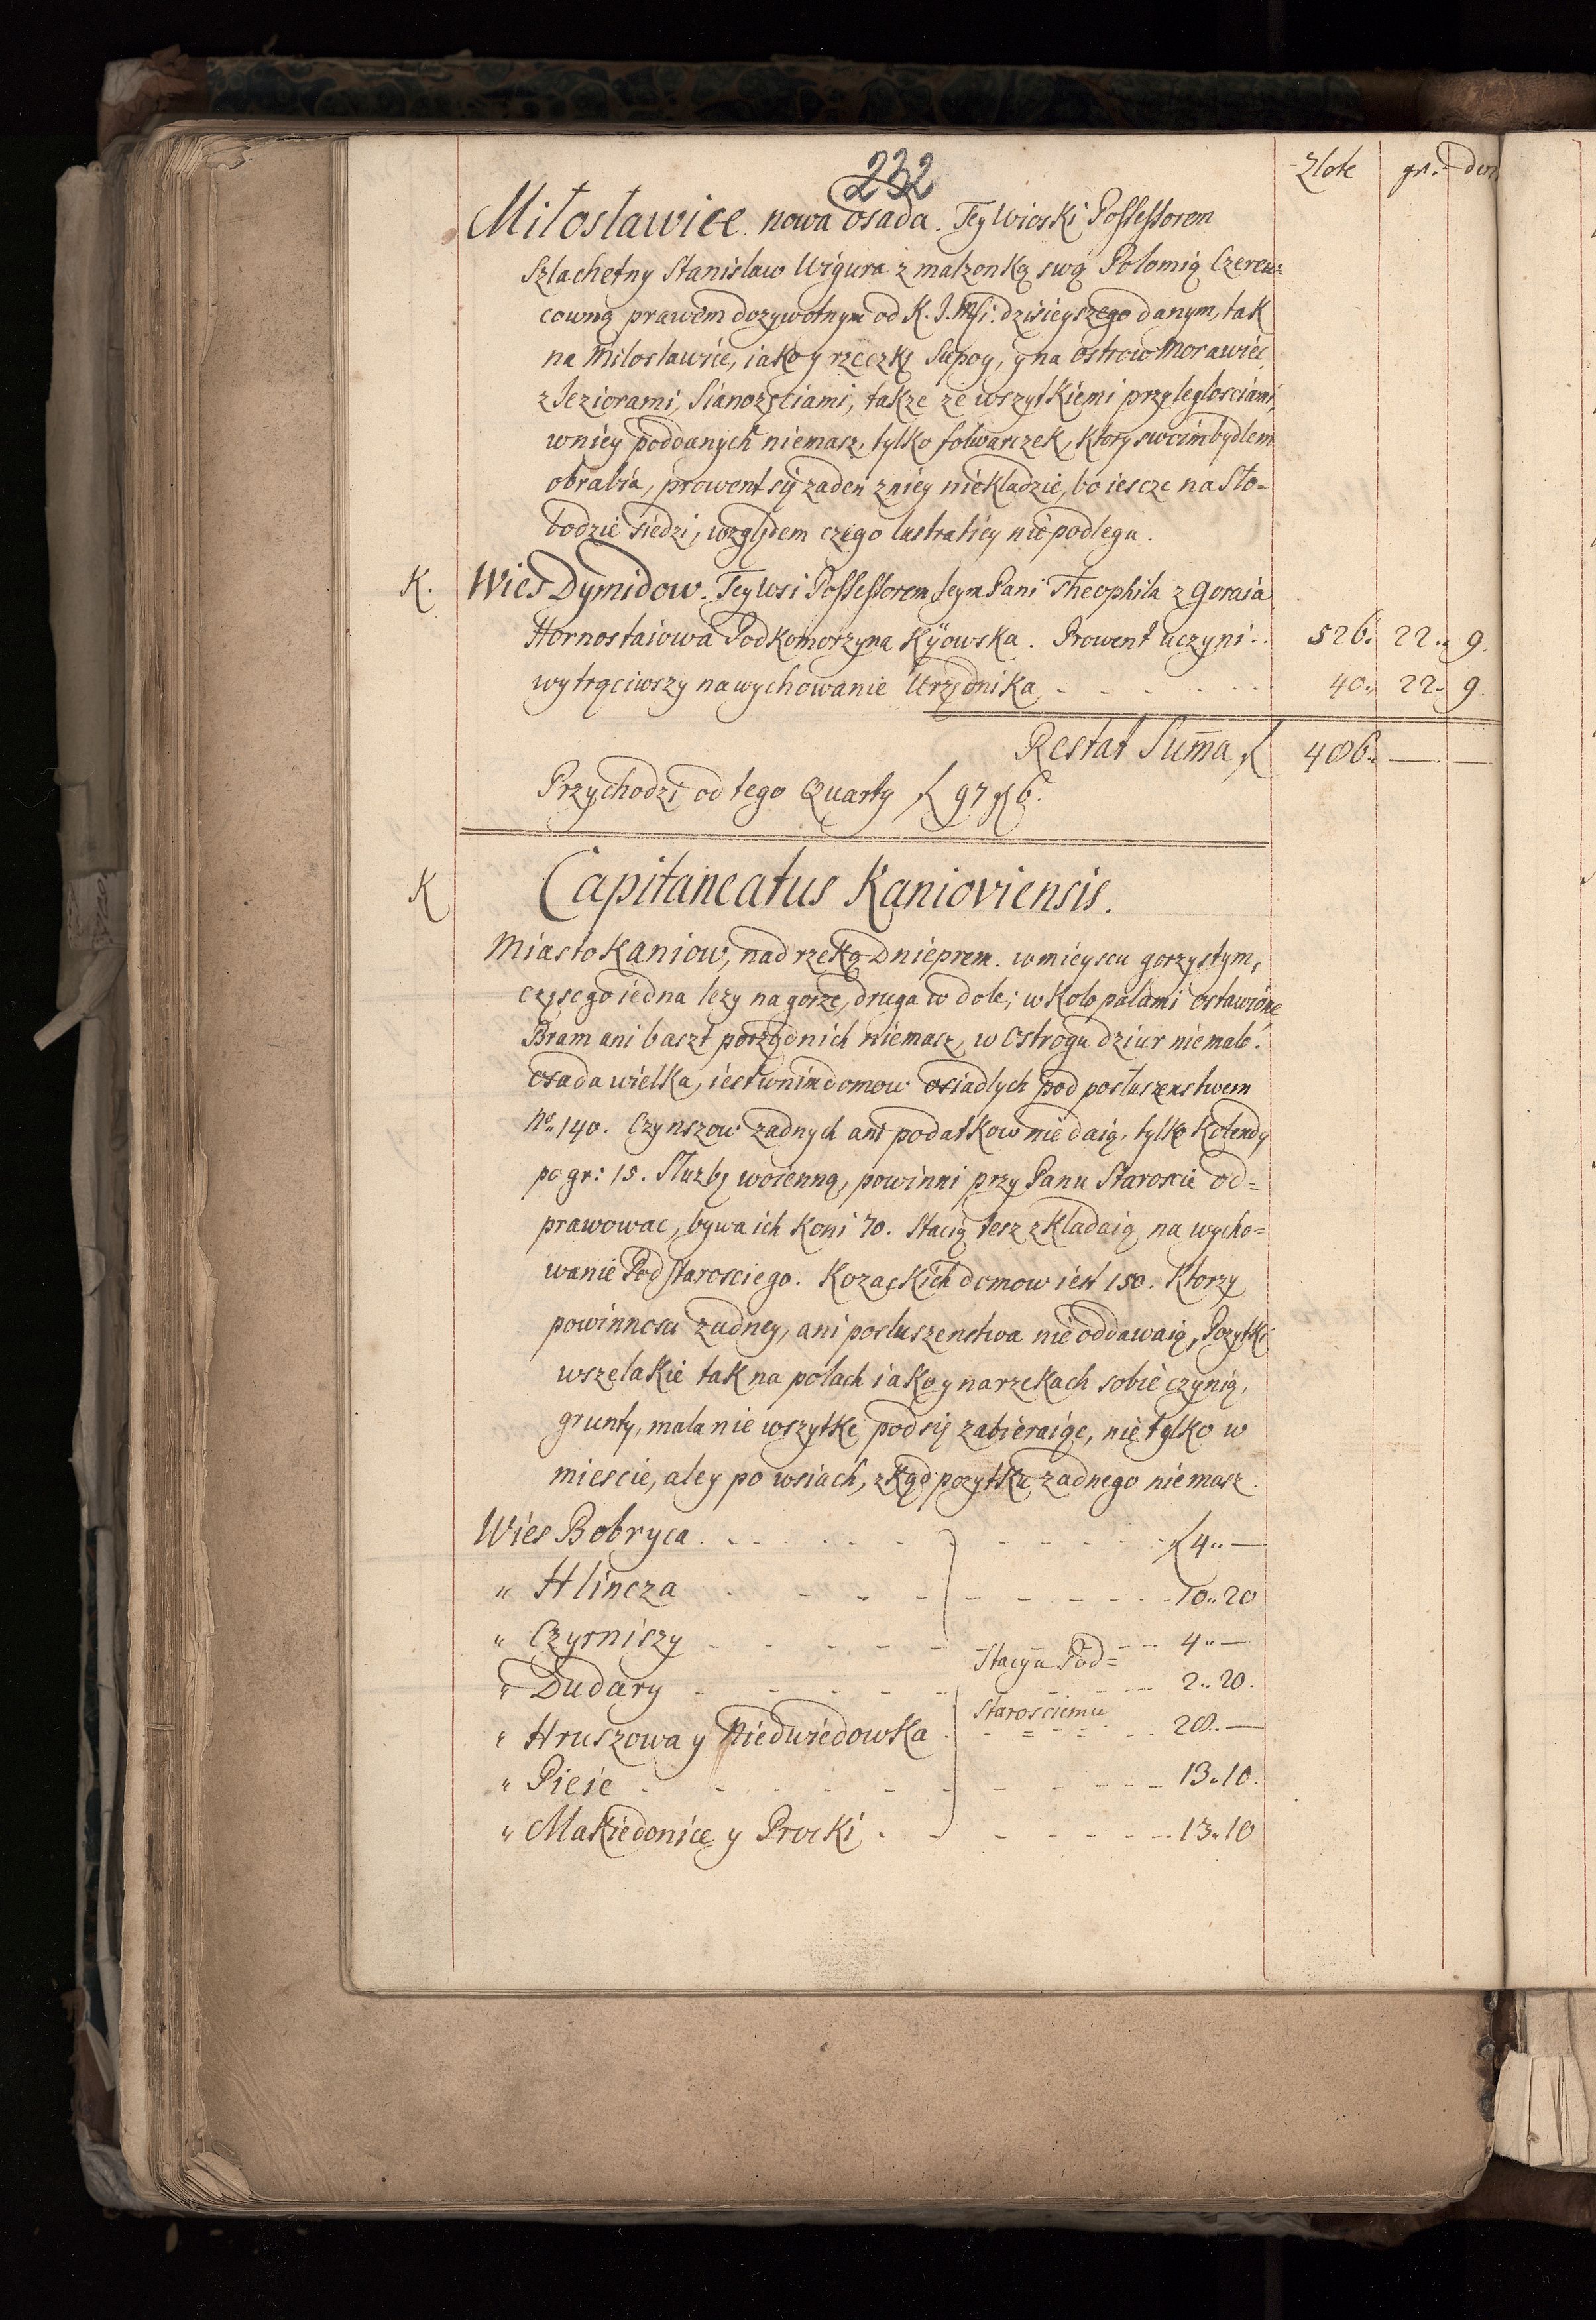 232
Złote gr. den
Miłosławice nowa osada. Tey Wioski Possessorem
Szlachetny Stanisław Wigura z małzonką swą Połomią Czerew=
cowną prawem dozywotnym od K. J. Msi. dzisieyszego danym, tak
na Miłosławice, iako y rzeczkę Supoy, y na ostrow Morawiec
z Jeziorami, Sianozęciami, takze ze wszytkiemi przyległosciami,
w niey poddanych niemasz, tylko folwarczek, ktory swoim bydłem
obrabia, prowent się zaden z niey niekładzie, bo iescze na Sło=
bodzie siedzi, względem czego lustratiey nie podlega.
K. Wies Dymidow. Tey Wsi Possessorem Jeym Pani Theophila z Goraia
Hornostaiowa Podkomorzyna Kÿowska. Prowent uczyni .. 526. 22.. 9.
wytrąciwszy na wychowanie Urzędnika . . . . . . 40.. 22.. 9
Restat Suma ƒ 486.. — —
Przychodzi od tego Quarty ƒ 97 gr 6.
K Capitaneatus Kanioviensis.
Miasto Kaniow, nad rzeką Dnieprem. w mieyscu gorzystym,
częsc go iedna lezy na gorze, druga w dole; w koło palami ostawione
Bram ani baszt porządnich niemasz, w Ostrogu dziur niemało.
osada wielka, iest w nim domow osiadłych pod posłuszenstwem
No. 140. Czynszow zadnych ani podatkow nie daią, tylko Kolendy
po gr: 15. Słuzbę woienną, powinni przy Panu Staroscie od=
prawowac, bywa ich koni 70. Stacią tesz zkładaią na wycho=
wanie Podstarosciego. Kozackich domow iest 150. Ktorzy
powinnosci zadney, ani posłuszenstwa nie oddawaią, Pozytki
wszelakie tak na polach iako y na rzekach sobie czynią,
grunty, mała nie wszytke pod się zabieraiąc, nie tylko w
miescie, ale y po wsiach, zkąd pozytku zadnego niemasz.
Wies Bobryca . . . . . . ƒ 4.. —
" Hlincza . . . . . . 10.. 20
" Czyrniszy . . . . . . 4.. —
Stacyu Pod=
" Dudary . . . . . . 2.. 20.
Starosciemu
" Hruszowa y Niedwiedowka . . . . . 28.. —
" Pieie . . . . . . 13.. 10.
" Makiedonice y Procki . . . . . . 13.. 10